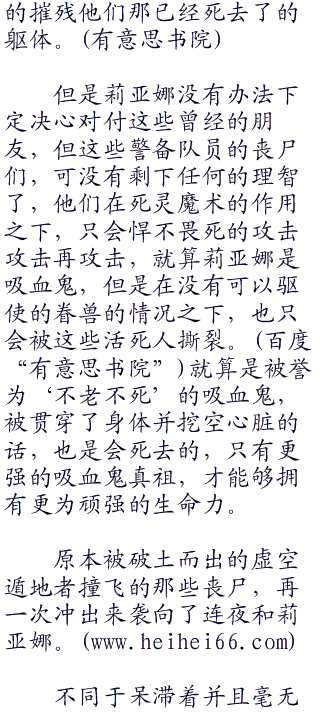 的摧残他们那已经死去了的
躯体。(有意思书院)
但是莉亚娜没有办法下
定决心对付这些曾经的朋
友，但这些警备队员的丧尸
们，可没有剩下任何的理智
了，他们在死灵魔术的作用
之下，只会悍不畏死的攻击
攻击再攻击，就算莉亚娜是
吸血鬼，但是在没有可以驱
使的眷兽的情况之下，也只
会被这些活死人撕裂。(百度
“有意思书院”)就算是被誉
为‘不老不死’的吸血鬼，
被贯穿了身体并挖空心脏的
话，也是会死去的，只有更
强的吸血鬼真祖，才能够拥
有更为顽强的生命力。
原本被破土而出的虚空
遁地者撞飞的那些丧尸，再
一次冲出来袭向了连夜和莉
亚娜。(www.heihei66.com)
不同于呆滞着并且毫无